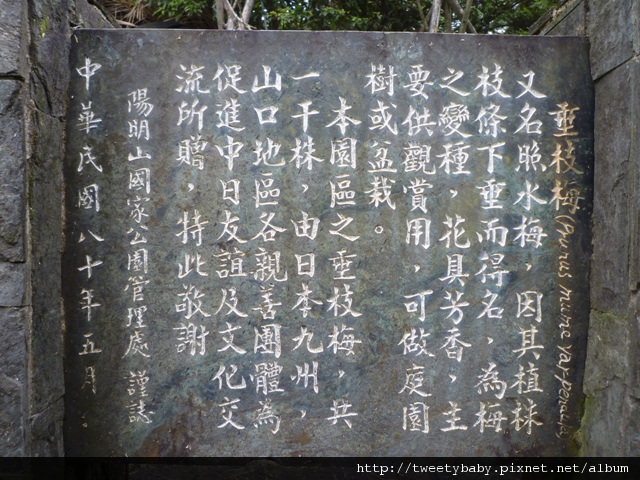 垂枝梅 (Prunus mume var. pendula)
又名照水梅，因其植株
枝條下垂而得名，為梅
之變種，花具芳香，主
要供觀賞用，可做庭園
樹或盆栽。
本園區之垂枝梅，共
一千株，由日本九州，
山口地區各親善團體為
促進中日友誼及文化交
流所贈，特此敬謝
陽明山國家公園管理處 謹誌
中華民國八十年五月
http://tweetybaby.pixnet.net/album